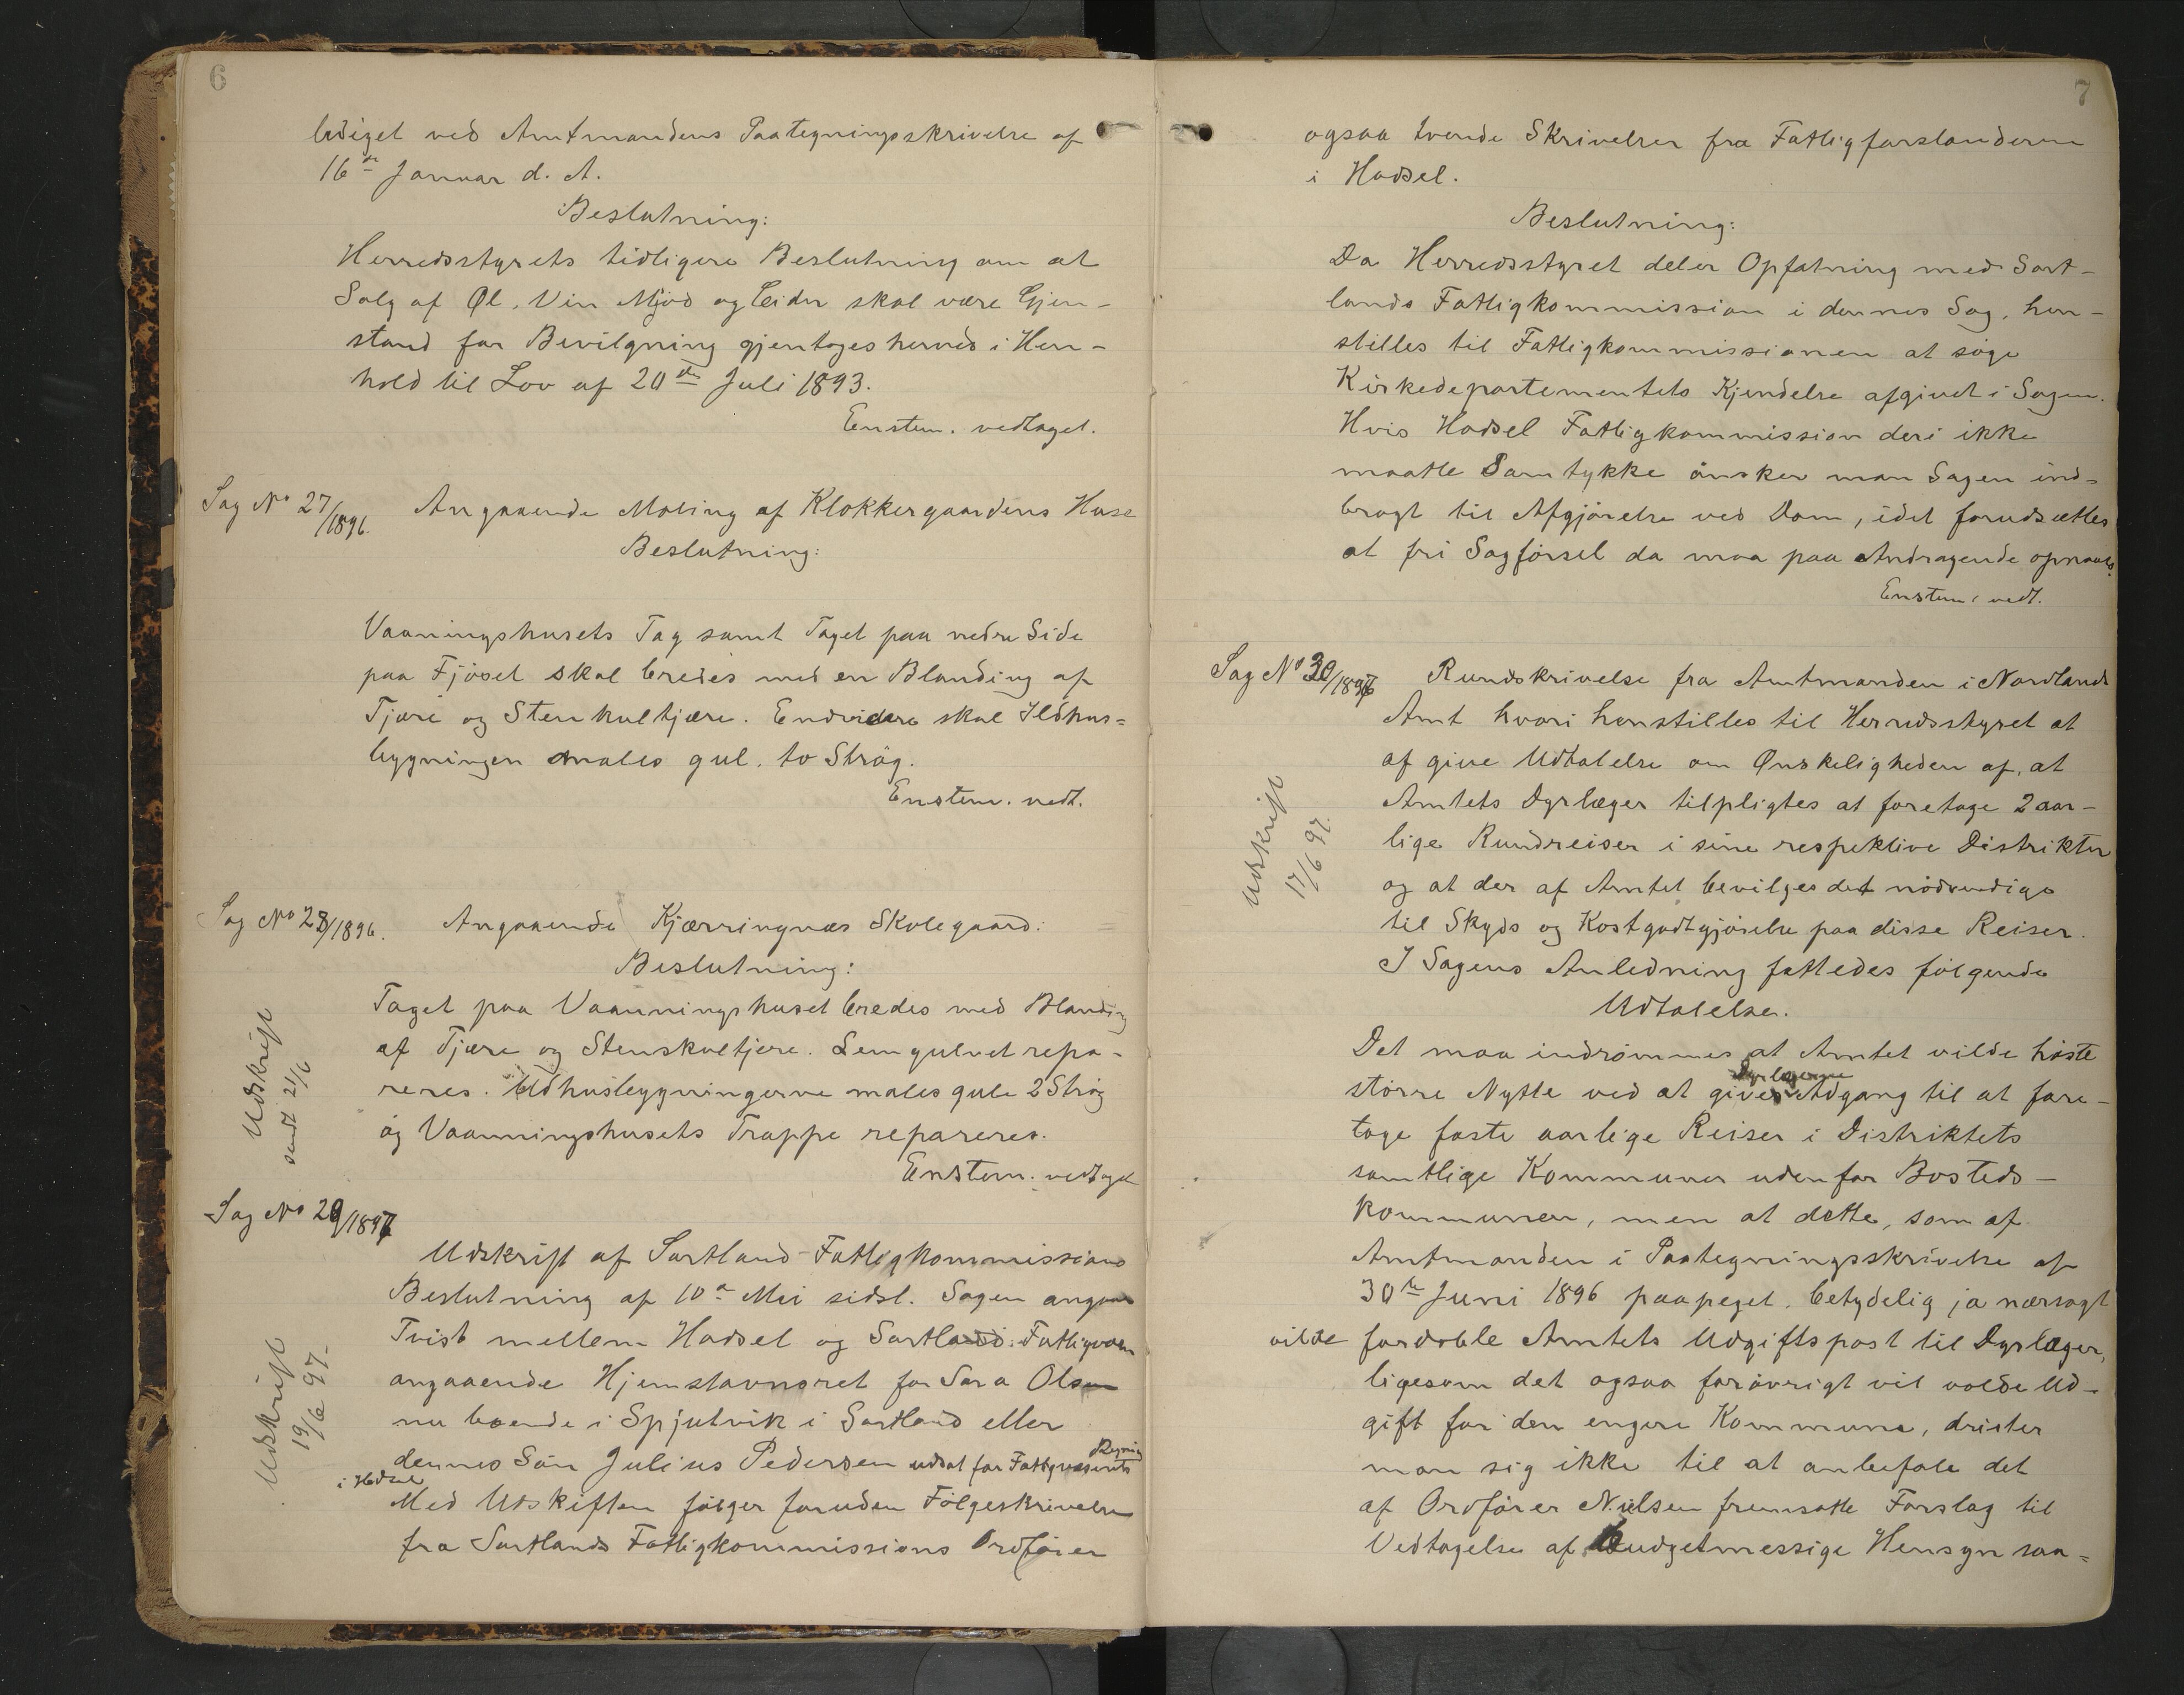 6
lediget ved Amtmandens Paategningsskrivelse af
16de Januar d. A.
Beslutning:
Herredsstyrets tidligere Beslutning om at
Salg af Øl, Vin Mjød og Cider skal være Gjen-
stand for Bevilgning gjentages herved i Hen-
hold til Lov af 20de Juli 1893.
Enstem. vedtaget.
Sag No 27/1896. Angaaende Maling af Klokkergaardens Huse
Beslutning:
Vaaningshusets Tag samt Taget paa nedre Side
paa Fjøset skal bredes med en Blanding af
Tjære og Stenkultjære. Endvidere skal Ildhus=
bygningen males gul. to Strøg.
Enstem. vedt.
Sag No 28/1896. Angaaende Kjærringnæs Skolegaard:
Beslutning:
Taget paa Vaanningshuset bredes med Blanding
af Tjære og Stenskultjere. Lemgulvet repa-
reres. Udhusbygningerne males gule 2 Strøg
og Vaanningshusets Trappe repareres.
Enstem. vedtget
Udskrift
sendt 21/6
Sag No 29/1897
Udskrift af Sortland Fattigkommissions
Beslutning af 10de Mai sidst. Sagen angaar
Tvist mellem Hadsel og Sortland Fattigvæsen
angaaende Hjemstavnsret for Sara Olsen
nu boende i Spjutvik i Sortland eller
dennes Søn Julius Pedersen udsat for Fattigvæsenets Regning
i Hadsel
Med Utskiften følger foruden Følgeskrivelse
fra Sortlands Fattigkommissions Ordfører
Udskrift
19/6 97-
7
ogsaa tvende Skrivelser fra Fattigforstanderen
i Hadsel.
Beslutning:
Da Herredsstyret deler Opfatning med Sort-
lands Fattigkommission i dennes Sag, hen-
stilles til Fattigkommissionen at søge
Kirkedepartementets Kjendelse afgivet i Sagen.
Hvis Hadsel Fattigkommission deri ikke
maatte Samtykke ønsker man Sagen ind-
bragt til Afgjørelse ved Dom, idet forudsættes
at fri Sagførsel da maa paa Andragende opnaaes.
Enstem. vedt.
Sag No 30/1896 Rundskrivelse fra Amtmanden i Nordlands
Amt hvori henstilles til Herredsstyret at
afgive Udtalelse om Ønskeligheden af, at
Amtets Dyrlæger tilpligtes at foretage 2 aar-
lige Rundreiser i sine respektive Distrikter
og at der af Amtet bevilges det nødvendige
til Skyds og Kostgodtgjørelse paa disse Reiser.
I Sagens Anledning fattedes følgende
Udtalelse.
Udskrift
17/6 97.
Det maa indrømmes at Amtet vilde høste
større Nytte ved at gives Dyrlægerne Adgang til at fore-
tage faste aarlige Reiser i Distriktets
samtlige Kommuner udenfor Bosteds-
kommunen, men at dette, som af
Amtmanden i Paategningsskrivelse af
30te Juni 1896 paapeget, betydelig ja nærsagt
vilde fordoble Amtets Udgiftspost til Dyrlæger,
ligesom det ogsaa forøvrigt vil volde Ud-
gift for den engere Kommune, drister
man sig ikke til at anbefale det
af Ordfører Nielsen fremsatte Forslag til
Vedtagelse af Budgetmessige Hensyn saa=